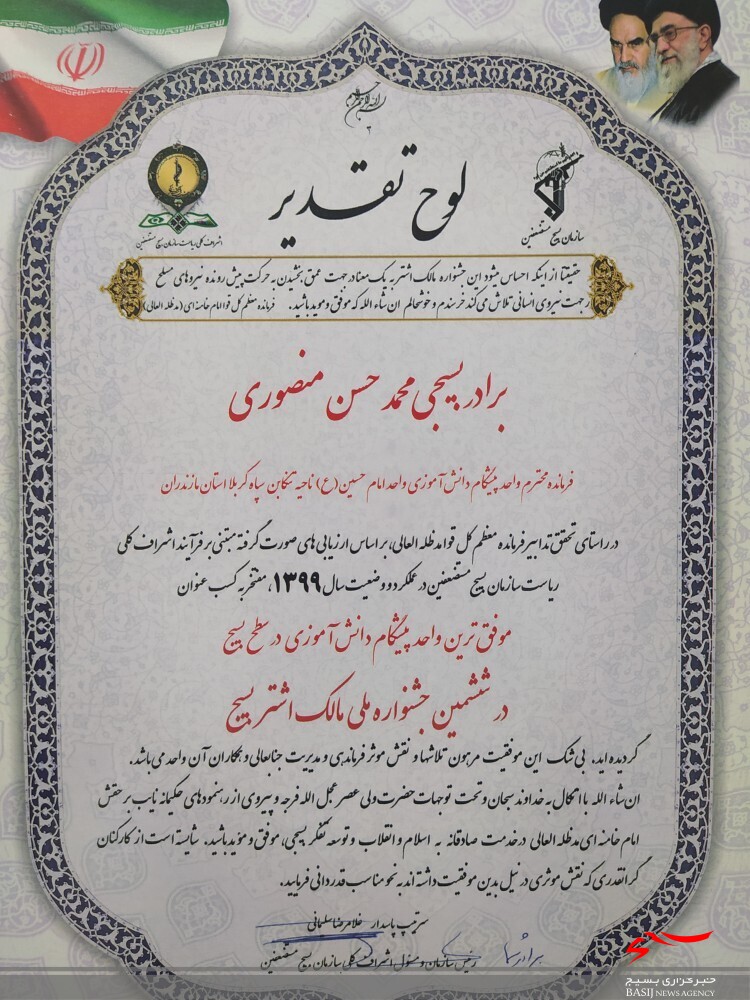 لوح تقدیر
سازمان بسیج مستضعفین
اشراف کلی ریاست سازمان بسیج مستضعفین
حقیقتاً از اینکه احساس میشود این جشنواره مالک اشتر به یک معنا در جهت عمق بخشیدن به حرکت پیش رونده نیروهای مسلح
در جهت نیروی انسانی تلاش می کند خرسندم و خوشحالم ان شاء الله که موفق و موید باشید. فرمانده معظم کل قوا امام خامنه ای (مدظله العالی)
برادر بسیجی محمد حسن منصوری
فرمانده محترم واحد پیشگام دانش آموزی واحد امام حسین (ع) ناحیه تنکابن سپاه کربلا استان مازندران
در راستای تحقق تدابیر فرمانده معظم کل قوا مدظله العالی، بر اساس ارزیابی های صورت گرفته مبتنی بر فرآیند اشراف کلی
ریاست سازمان بسیج مستضعفین در عملکرد و وضعیت سال ۱۳۹۹، مفتخر به کسب عنوان
موفق ترین واحد پیشگام دانش آموزی در سطح بسیج
در ششمین جشنواره ملی مالک اشتر بسیج
گردیده اید. بی شک این موفقیت مرهون تلاشها و نقش موثر فرماندهی و مدیریت جنابعالی و همکاران آن واحد می باشد.
ان شاء الله با اتکال به خداوند سبحان و تحت توجهات حضرت ولی عصر عجل الله فرجه و پیروی از رهنمودهای حکیمانه نایب بر حقش
امام خامنه ای مدظله العالی در خدمت صادقانه به اسلام و انقلاب و توسعه تفکر بسیجی، موفق و مؤید باشید. شایسته است از کارکنان
گرانقدری که نقش موثری در نیل بدین موفقیت داشته اند به نحو مناسب قدردانی فرمایید.
سرتیپ پاسدار غلامرضا سلیمانی
رئیس سازمان و مسئول اشراف کلی سازمان بسیج مستضعفین
خبرگزاری بسیج
BASIJ NEWS AGENCY